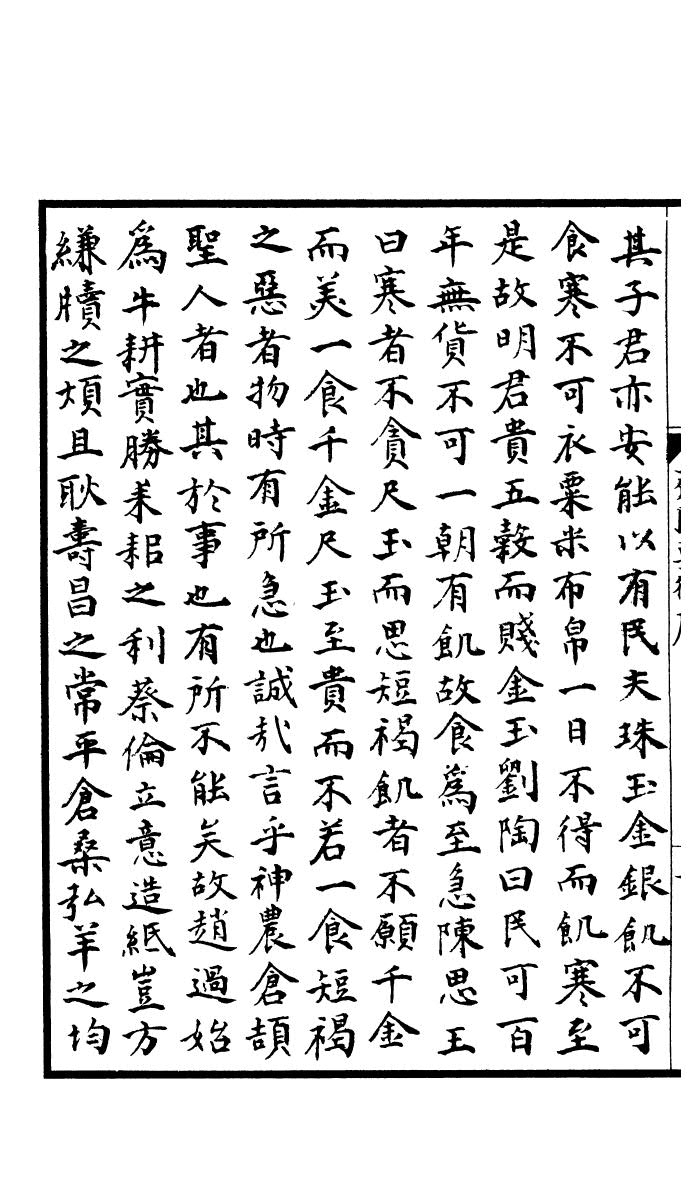 其子君亦安能以有民夫珠玉金銀飢不可
食寒不可衣粟米布帛一日不得而飢寒至
是故明君貴五穀而賤金玉劉陶曰民可百
年無貨不可一朝有飢故食為至急陳思王
曰寒者不貪尺玉而思短褐飢者不願千金
而美一食千金尺玉至貴而不若一食短褐
之惡者物時有所急也誠哉言乎神農倉頡
聖人者也其於事也有所不能矣故趙過始
為牛耕實勝耒耜之利蔡倫立意造紙豈方
縑牘之煩且耿壽昌之常平倉桑弘羊之均